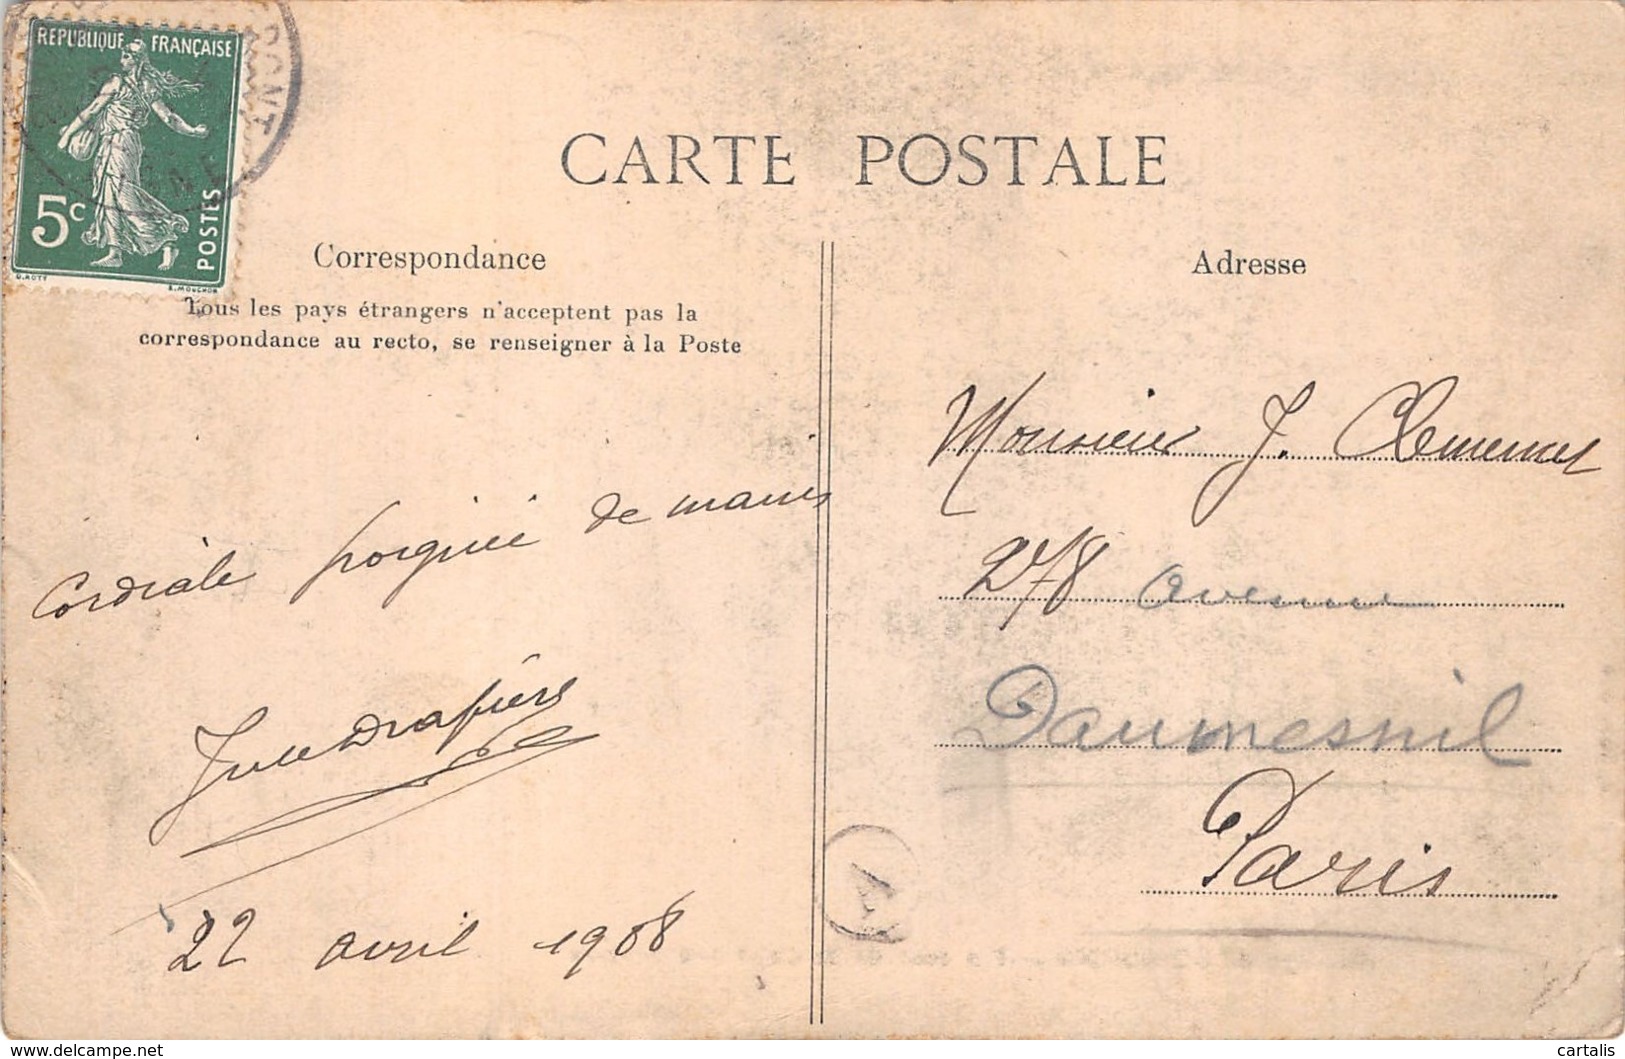 REPUBLIQUE FRANÇAISE
5c
POSTES
O. ROTY
E. MOUCHON
CARTE POSTALE
Correspondance
Tous les pays étrangers n'acceptent pas la
correspondance au recto, se renseigner à la Poste
Cordiale poignée de mains
22 avril 1908
Adresse
Monsieur J.
278 avenue
Daumesnil
Paris
1
cartalis
www.delcampe.net